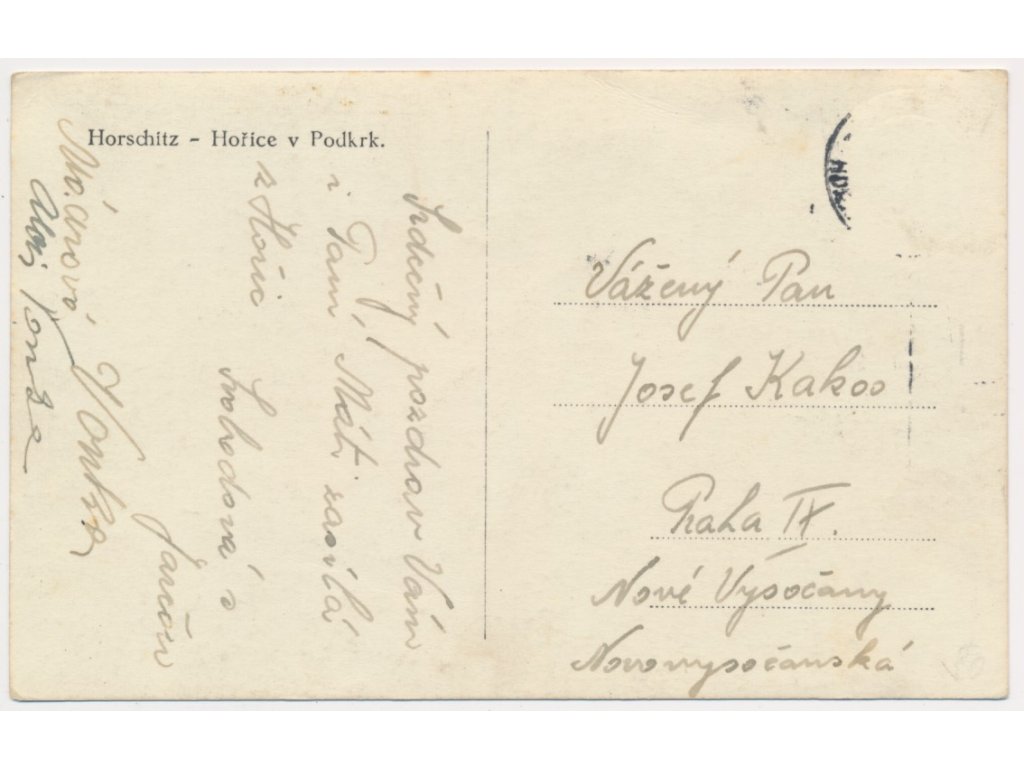 Horschitz - Hořice v Podkrk.
Srdečný pozdrav Vám
i Paní, Máti zasílá
z Hořic
Svobodová s
Jarčou
Vonka
Vonka
Vážený Pan
Josef Kakos
Praha IX.
Nové Vysočany
Novovysočanská